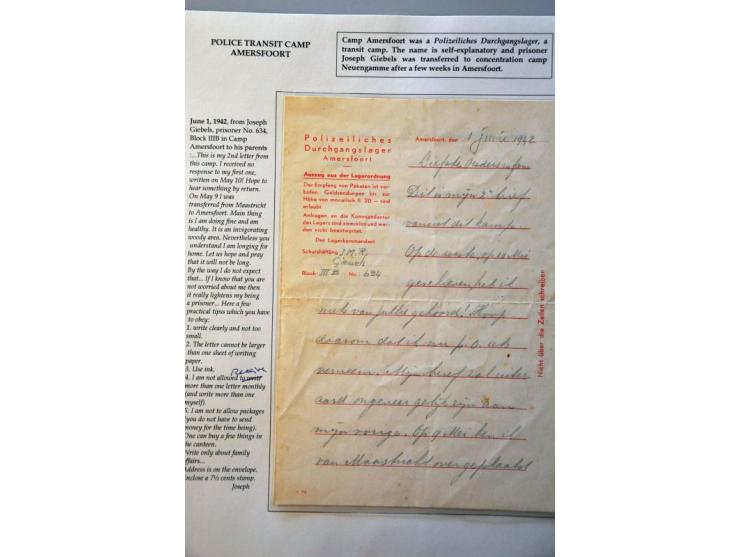 POLICE TRANSIT CAMP
AMERSFOORT
Camp Amersfoort was a Polizeiliches Durchgangslager, a
transit camp. The name is self-explanatory and prisoner
Joseph Giebels was transferred to concentration camp
Neuengamme after a few weeks in Amersfoort.
June 1, 1942, from Joseph
Giebels, prisoner No. 634,
Block IIIB in Camp
Amersfoort to his parents
:...This is my 2nd letter from
this camp. I received no
response to my first one,
written on May 10! Hope to
hear something by return.
On May 9 I was
transferred from Maastricht
to Amersfoort. Main thing
is I am doing fine and am
healthy. It is an invigorating
woody area. Nevertheless you
understand I am longing for
home. Let us hope and pray
that it will not be long.
By the way I do not expect
that... If I know that you are
not worried about me then
it really lightens my being
a prisoner... Here a few
practical tipss which you have
to obey:
1. write clearly and not too
small.
2. The letter cannot be larger
than one sheet of writing
paper.
3. Use ink.
4. I am not allowed to
more than one letter monthly
(and write more than one
myself).
5. I am not to allow packages
(you do not have to send
money for the time being).
One can buy a few things in
the canteen.
Write only about family
ffairs...
Address is on the envelope.
nclose a 7½ cents stamp.
Joseph
Polizeiliches
Durchgangslager
Amersfoort
Auszug aus der Lagerordnung
Der Empfang von Paketen ist ver-
boten. Geldsendungen bis zur
Höhe von monatlich fl. 20.— sind
erlaubt.
Anfragen an die Kommandantur
des Lagers sind zwecklos und wer-
den nicht beantwortet.
Der Lagerkommandant.
Schutzhäftling J.M.R.
Block: III B No.: 634
Amersfoort, den 1 Junie 1942
Liefste Ouders en fam
Dit is mijn 2e brief
vanuit dit kamp.
Op de eerste, op 10 Mei
geschreven heb ik
niets van jullie gehoord! Hoop
daarom dat ik nu p.o. iets
verneem. Mijn brief zal uiter
aard ongeveer gelijk zijn aan
mijn vorige. Op 9 Mei ben ik
van Maastricht overgeplaatst
Nicht über die Zeilen schreiben